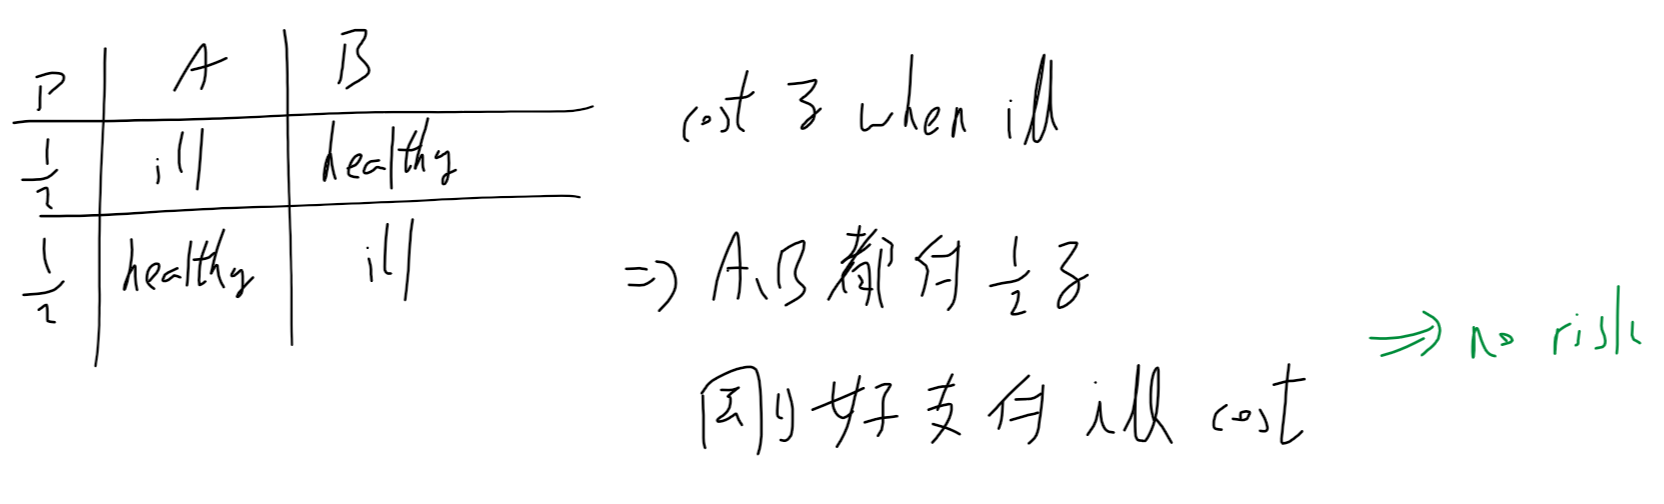 P A B
1/2 ill healthy
1/2 healthy ill
cost z when ill
=> A、B都付 1/2 z
刚好支付 ill cost
=> no risk